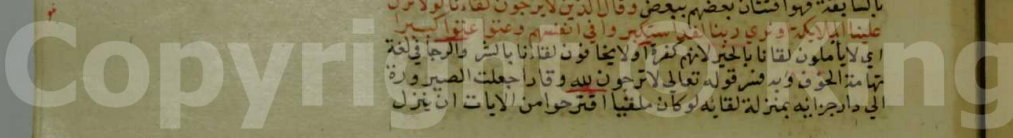 بالسابقة فهوافتتان بعضهم ببعض وقال الذين لايرجون لقاءنا لولا نزل
علينا الملايكة ونرى ربنا لقد استكبروا في انفسهم وعتوا عتوا كبيرا
اي لايأملون لقانا بالخير لانهم كفرة اولايخافون لقاءنا بالشر والرجا في لغة
تهامة الخوف وبه فسر قوله تعالى لاترجون لله وقارا جعلت الصيرورة
الي دار جزايه بمنزلة لقايه لوكان ملقيا اقترحوا من الايات ان ينزل
Copyright King